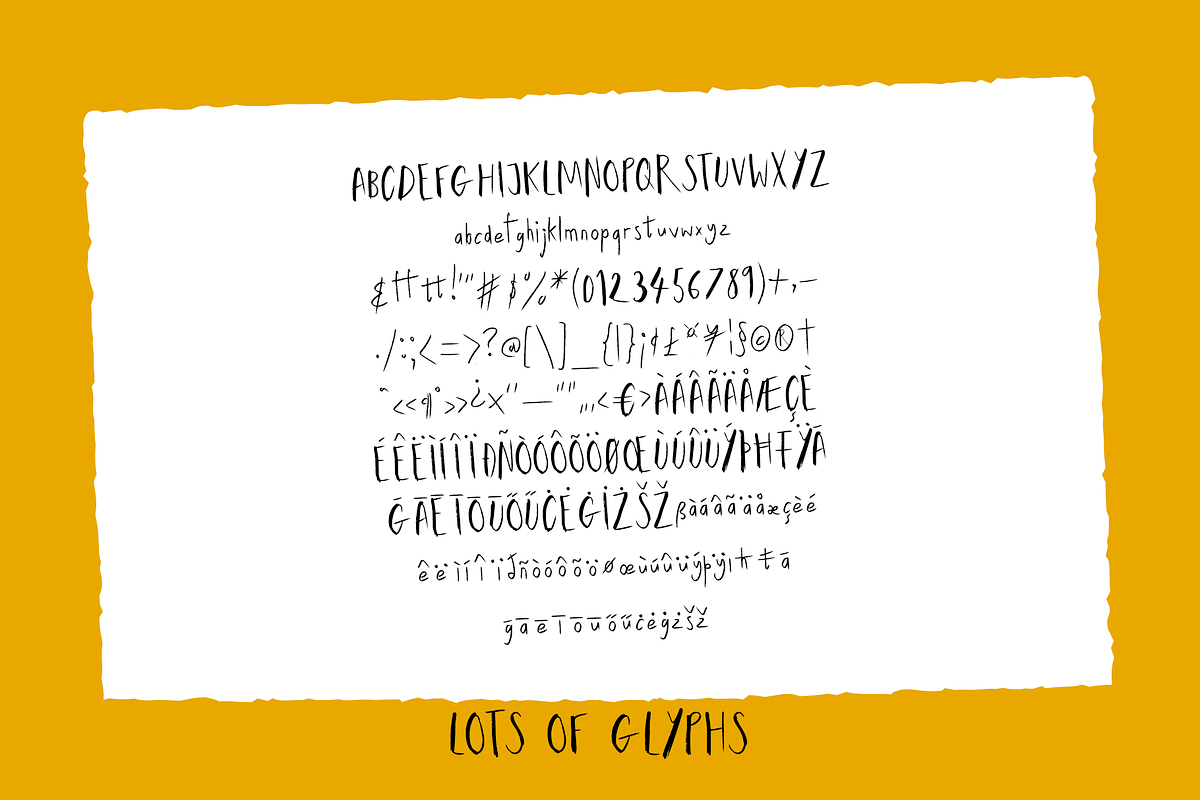 ABCDEFGHIJKLMNOPQRSTUVWXYZ
abcdefghijklmnopqrstuvwxyz
&fftt!"'#$%*(0123456789)+,-
./:;<=>?@[\]_{|}¡¢£¤¥¦§©®†
ˆ<<¶°>>¿×"—"",,,<€>ÀÁÂÃÄÅÆÇÈ
ÉÊËÌÍÎÏÐÑÒÓÔÕÖØŒÙÚÛÜÝÞĦŦŸĀ
ḠĀĒĪŌŪŐŰĊĖĠİŻŠŽßàáâãäåæçèé
êëìíîïðñòóôõöøœùúûüýþÿıħŧā
ḡāēīōūőűċėġżšž
LOTS OF GLYPHS